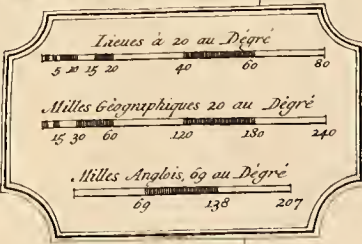 Lieues à 20 au Dégré
5 10 15 20 40 60 80
Milles Géographiques 20 au Dégré
15 30 60 120 180 240
Milles Anglois, 69 au Dégré
69 138 207